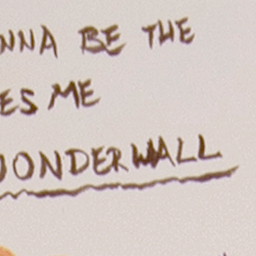 NNA BE THE
ES ME
ONDERWALL